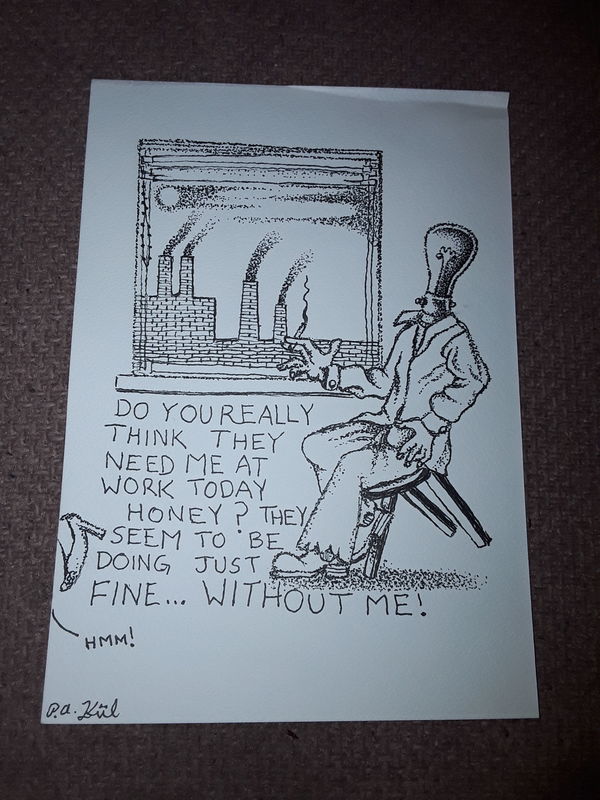 DO YOU REALLY
THINK THEY
NEED ME AT
WORK TODAY
HONEY? THEY
SEEM TO BE
DOING JUST
FINE... WITHOUT ME!
HMM!
P.A. Kül